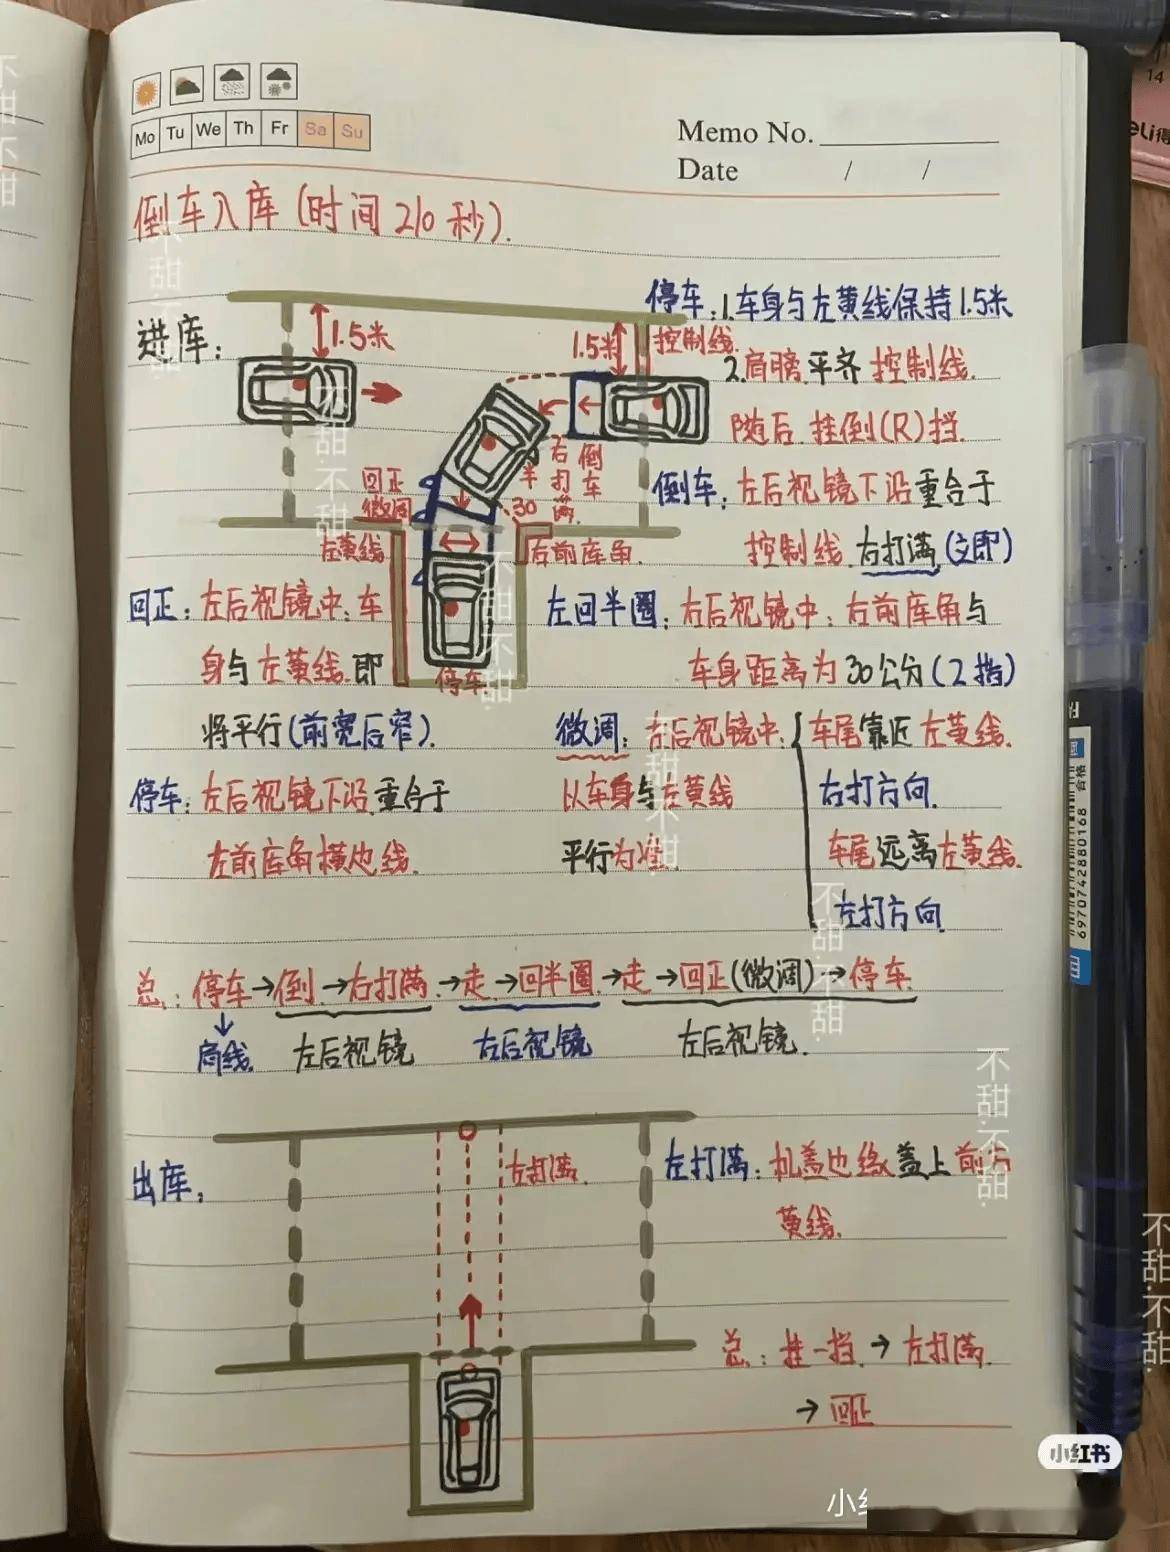 Mo Tu We Th Fr Sa Su
Memo No.
Date / /
倒车入库(时间210秒).
进库:
1.5米
1.5米
控制线.
停车:1.车身与左黄线保持1.5米
2.肩膀平齐控制线.
随后挂倒(R)挡.
倒车:左后视镜下沿重合于
控制线.右打满(立即)
倒车
右打满.
半
回正
微调
30
左黄线
右前库角.
停车
回正:左后视镜中:车
身与左黄线.即
将平行(前宽后窄).
停车:左后视镜下沿重合于
左前库角横边线.
左回半圈:右后视镜中:右前库角与
车身距离为30公分(2指)
微调:左后视镜中:
以车身与左黄线
平行为准.
车尾靠近左黄线.
右打方向.
车尾远离左黄线.
左打方向.
总:停车→倒→右打满→走→回半圈→走→回正(微调)→停车.
肩线.
左后视镜
右后视镜
左后视镜.
出库:
左打满.
左打满:机盖边缘盖上前方
黄线.
总:挂一挡→左打满.
→回正
小红书
不甜.不甜.
不甜.不甜.
不甜.不甜.
不甜.不甜.
不甜.不甜.
不甜.不甜.
不甜.不甜.
6970742880168
合格
14
eli得